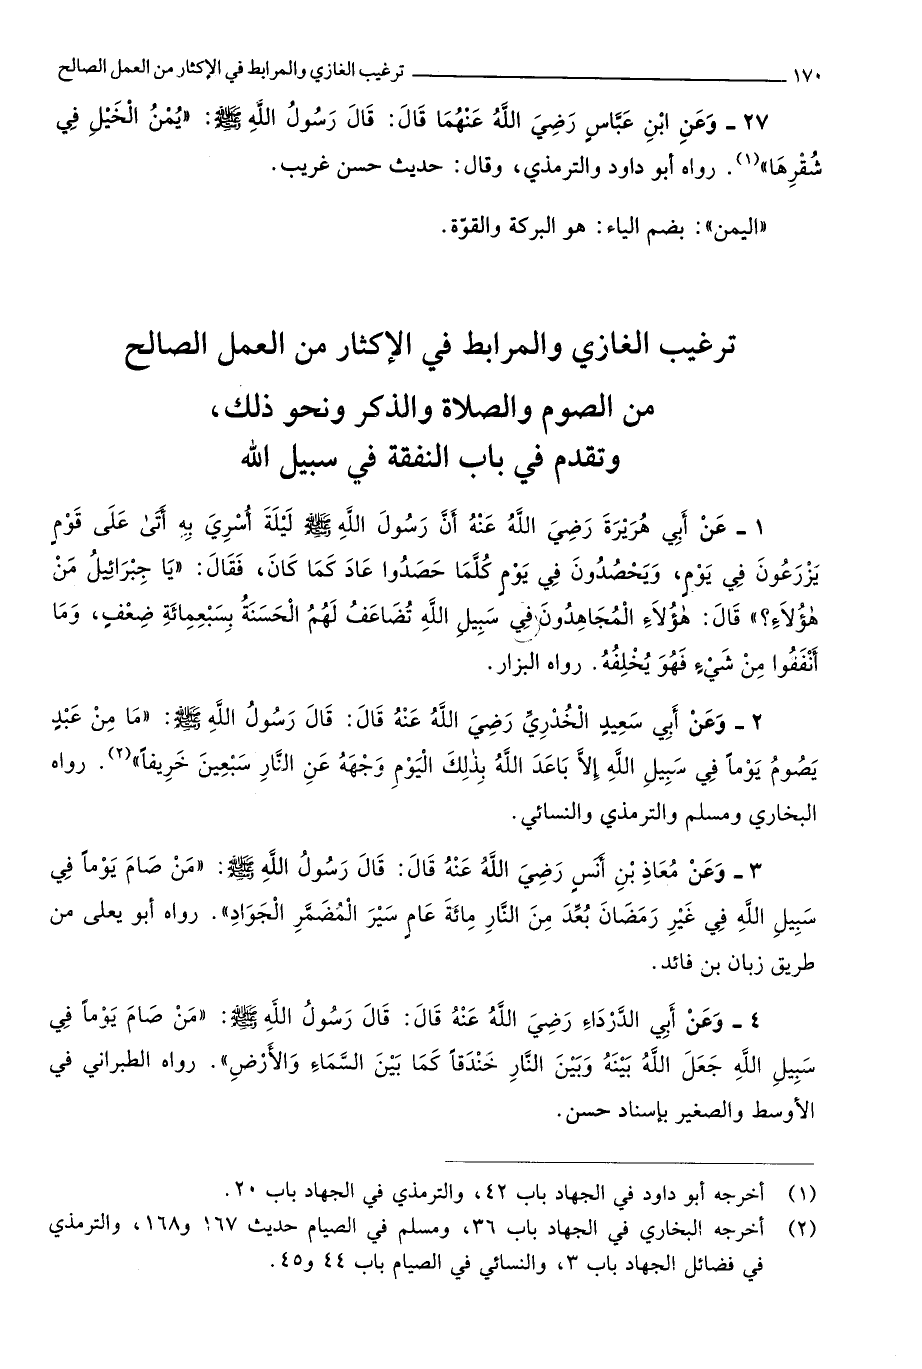 ١٧٠ ــــــــ ترغيب الغازي والمرابط في الإكثار من العمل الصالح
٢٧ ـ وَعَنِ ابْنِ عَبَّاسٍ رَضِيَ اللَّهُ عَنْهُمَا قَالَ: قَالَ رَسُولُ اللَّهِ ﷺ: «يُمْنُ الْخَيْلِ فِي
شُقْرِهَا»(١). رواه أبو داود والترمذي، وقال: حديث حسن غريب.
«اليمن»: بضم الياء: هو البركة والقوّة.
ترغيب الغازي والمرابط في الإكثار من العمل الصالح
من الصوم والصلاة والذكر ونحو ذلك،
وتقدم في باب النفقة في سبيل الله
١ ـ عَنْ أَبِي هُرَيْرَةَ رَضِيَ اللَّهُ عَنْهُ أَنَّ رَسُولَ اللَّهِ ﷺ لَيْلَةَ أُسْرِيَ بِهِ أَتَىٰ عَلَى قَوْمٍ
يَزْرَعُونَ فِي يَوْمٍ، وَيَحْصُدُونَ فِي يَوْمٍ كُلَّمَا حَصَدُوا عَادَ كَمَا كَانَ، فَقَالَ: «يَا جِبْرَائِيلُ مَنْ
هٰؤُلاَءِ؟» قَالَ: هٰؤُلاَءِ الْمُجَاهِدُونَ فِي سَبِيلِ اللَّهِ تُضَاعَفُ لَهُمُ الْحَسَنَةُ بِسَبْعِمِائَةِ ضِعْفٍ، وَمَا
أَنْفَقُوا مِنْ شَيْءٍ فَهُوَ يُخْلِفُهُ. رواه البزار.
٢ ـ وَعَنْ أَبِي سَعِيدٍ الْخُدْرِيِّ رَضِيَ اللَّهُ عَنْهُ قَالَ: قَالَ رَسُولُ اللَّهِ ﷺ: «مَا مِنْ عَبْدٍ
يَصُومُ يَوْماً فِي سَبِيلِ اللَّهِ إِلاَّ بَاعَدَ اللَّهُ بِذٰلِكَ الْيَوْمِ وَجْهَهُ عَنِ النَّارِ سَبْعِينَ خَرِيفاً»(٢). رواه
البخاري ومسلم والترمذي والنسائي.
٣ ـ وَعَنْ مُعَاذِ بْنِ أَنَسٍ رَضِيَ اللَّهُ عَنْهُ قَالَ: قَالَ رَسُولُ اللَّهِ ﷺ: «مَنْ صَامَ يَوْماً فِي
سَبِيلِ اللَّهِ فِي غَيْرِ رَمَضَانَ بُعِّدَ مِنَ النَّارِ مِائَةَ عَامٍ سَيْرَ الْمُضَمَّرِ الْجَوَادِ». رواه أبو يعلى من
طريق زبان بن فائد.
٤ ـ وَعَنْ أَبِي الدَّرْدَاءِ رَضِيَ اللَّهُ عَنْهُ قَالَ: قَالَ رَسُولُ اللَّهِ ﷺ: «مَنْ صَامَ يَوْماً فِي
سَبِيلِ اللَّهِ جَعَلَ اللَّهُ بَيْنَهُ وَبَيْنَ النَّارِ خَنْدَقاً كَمَا بَيْنَ السَّمَاءِ وَالأَرْضِ». رواه الطبراني في
الأوسط والصغير بإسناد حسن.
(١) أخرجه أبو داود في الجهاد باب ٤٢، والترمذي في الجهاد باب ٢٠.
(٢) أخرجه البخاري في الجهاد باب ٣٦، ومسلم في الصيام حديث ١٦٧ و١٦٨، والترمذي
في فضائل الجهاد باب ٣، والنسائي في الصيام باب ٤٤ و٤٥.